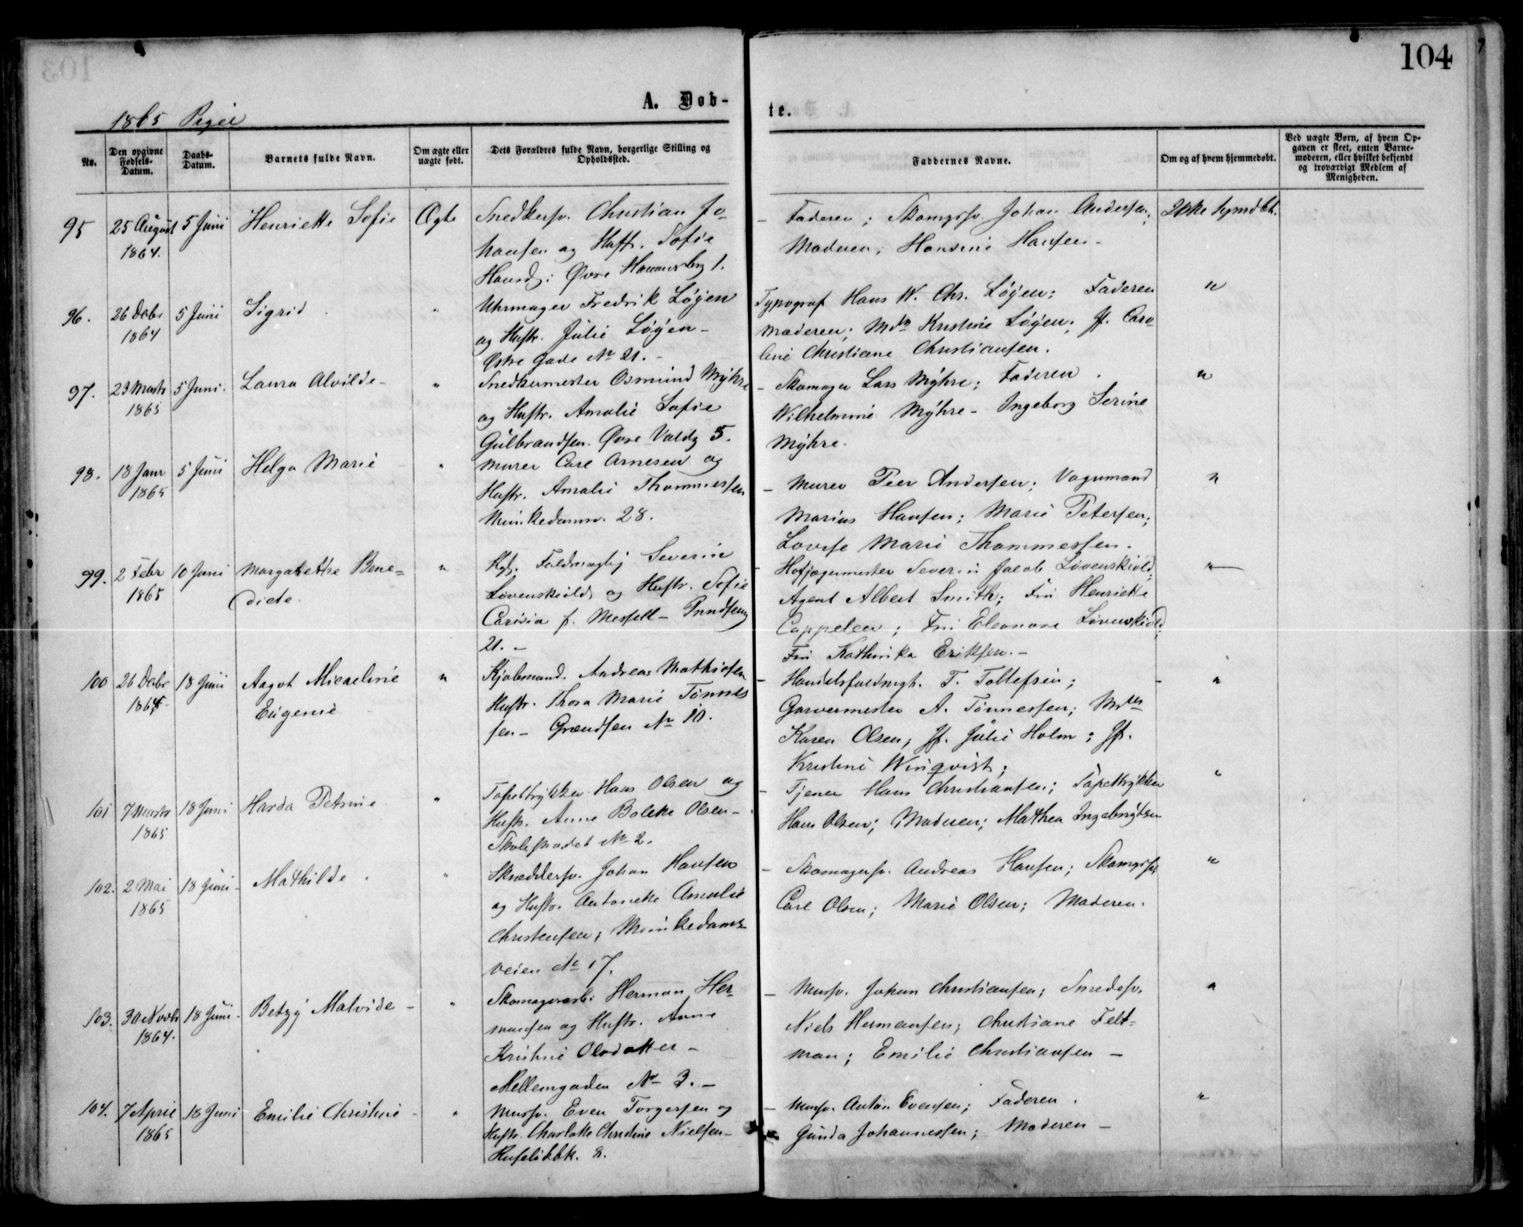 104
A. Døb-
te.
1865 Piger
No.
Den opgivne Fødsels-Datum.
Daabs-Datum.
Barnets fulde Navn.
Om ægte eller uægte født.
Dets Forældres fulde Navn, borgerlige Stilling og Opholdssted.
Faddernes Navne.
Om og af hvem hjemmedøbt.
Ved uægte Børn, af hvem Opgaven er skeet, enten Barnemoderen, eller hvilket bekjendt og troværdigt Medlem af Menigheden.
95 25 August 5 Juni Henriette Sofie Ægte Snedkersv. Christian Jo-
1864. hansen og Hustr. Sofie
Hansd: Øvre Hammersbg 1.
– Faderen; Skomgsv. Johan Andersen;
Moderen, Hansine Hansen –
Ikke hjmdbt.
96. 26 Decbr 5 Juni Sigrid " Uhrmager Fredrik Løgen
1864 og Hustr. Julie Løgen –
Østre Gade No 21. –
Typograf Hans W. Chr. Løgen; Faderen
Moderen; Mdm Kristine Løgen; Jf. Caro-
line Christiane Christiansen.
"
97. 23 Marts 5 Juni. Laura Alvilde – " Snedkermester Osmund Myhre
1865 og Hustr. Amalie Sofie
Gulbrandsen. Øvre Voldg 5.
– Skomager Lars Myhre; Faderen.
Wilhelmine Myhre – Ingeborg Serine
Myhre.
"
98. 18 Janr 5 Juni Helga Marie " Murer Carl Arnesen og
1865 Hustr. Amalie Thommessen
Munkedamsv. 28.
– Murer Peer Andersen; Vognmand
Marius Hansen; Marie Petersen;
Lovise Marie Thommessen.
"
99. 2 Febr 10 Juni Margarethe Bene= " Kgl. Fuldmægtig Severin
1865 dicte. Løvenskiold og Hustr. Sofie
f. Messell –
21. –
– Hofjægermester Severin Jacob Løvenskiold;
Agent Albert Smith; Fru Henriette
Cappelen; Fru Eleonore Løvenskiold;
Fru Kathinka Eriksen. –
"
100 26 Decbr 18 Juni Aagot Micaeline " Kjøbmand. Andreas Mathiesen
1864 Eugenie Hustr. Thora Marie Tønnes
sen – Grændsen No 10.
– Handelsfuldmgt. T. Tollefsen;
Garvermester A. Tønnessen; Mdm
Karen Olsen; Jf. Julie Holm; Jf.
Kristine Winqvist;
"
101 7 Marts 18 Juni Harda Petrine " Hans Olsen og
1865 Hustr. Anne Bolette Olsen –
No 2.
– Tjener Hans Christiansen;
Hans Olsen; Moderen; Mathea Ingebrigtsen
"
102. 2 Mai 18 Juni – Mathilde " Skræddersv. Johan Hansen
1865 og Hustr. Antonette Amalie
Christensen; Munkedams-
veien No 17.
– Skomagersv. Andreas Hansen; Skomgsv.
Carl Olsen; Marie Olsen; Moderen.
"
103. 30 Novbr 18 Juni – Betzy Malvide – " Herman Her-
1864. mansen og Hustr. Anne
Kristine Olsdatter –
Mellemgaden No 3. –
– Mursv. Johan Christiansen; Smedesv.
Niels Hermansen; Christiane Felt-
man; Emilie Christiansen –
"
104. 7 April 18 Juni Emilie Christine – " Mursv. Even Torgersen og
1865 Hustr. Charlotte Christine Nielsen –
2.
– Mursv. Anton Evensen; Faderen.
Gunda Johannessen; Moderen –
"